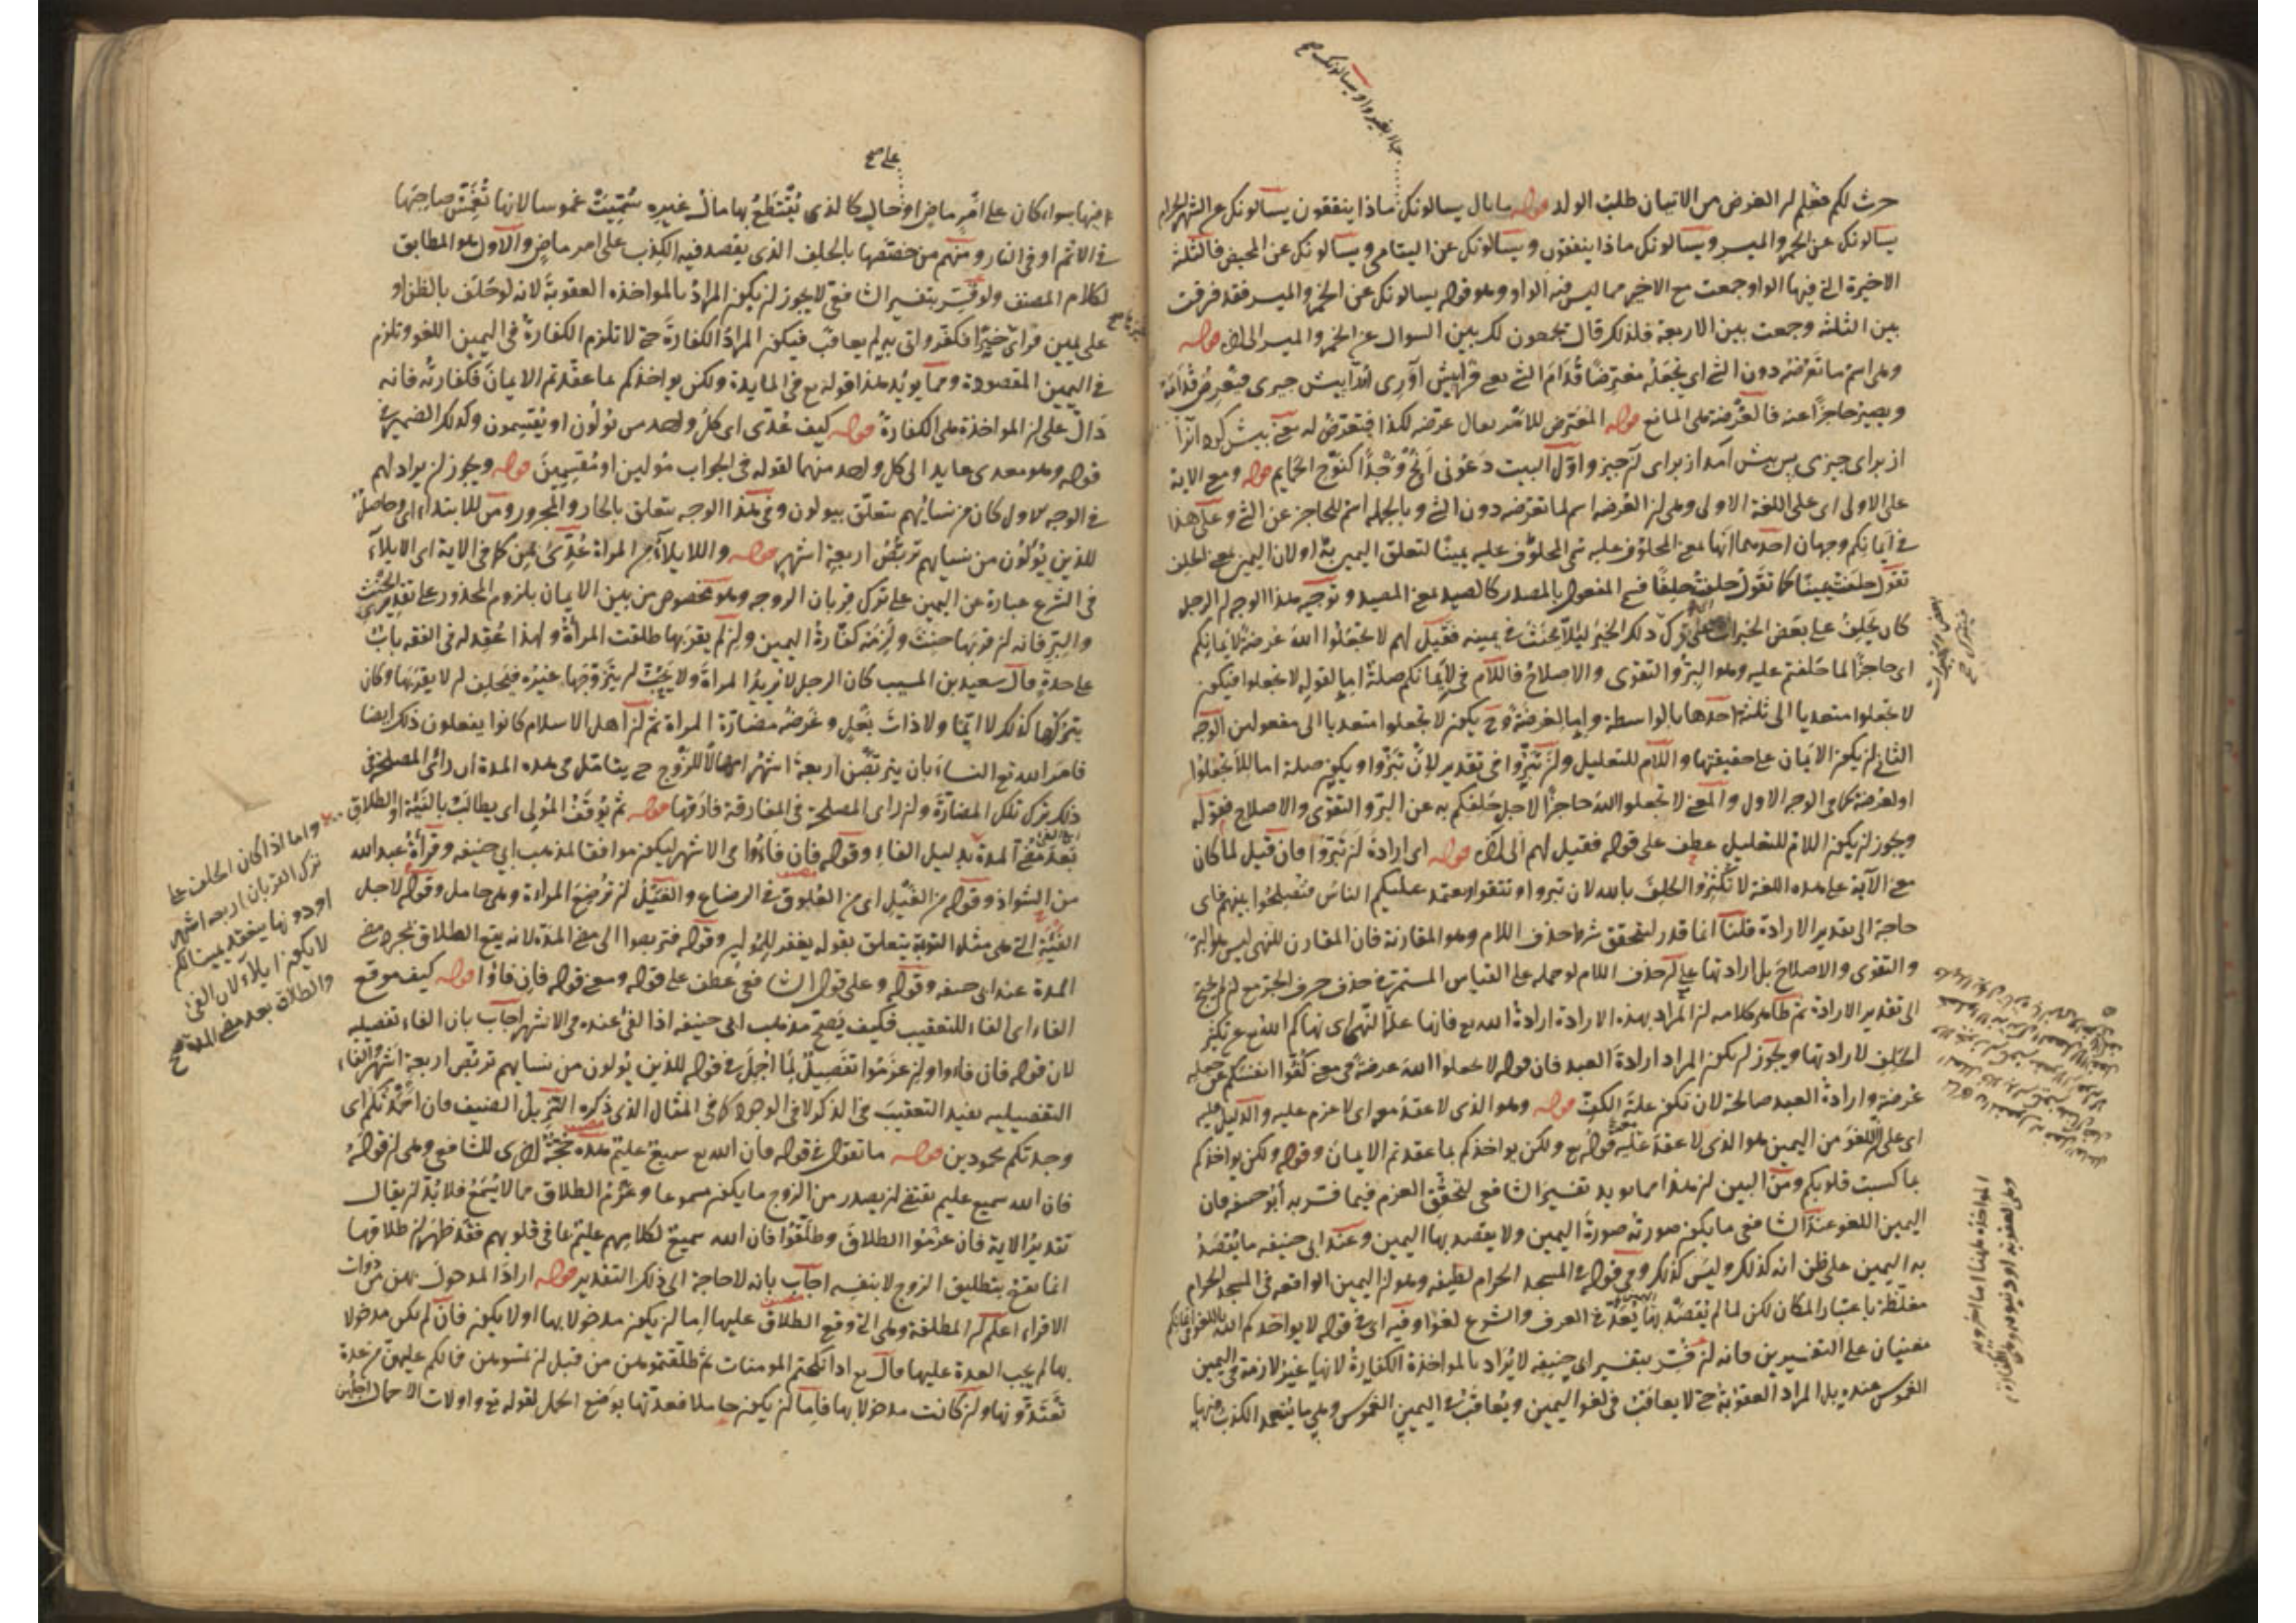 حرث لكم فعلم ان الغرض من الاتيان طلب الولد قوله ما بال يسالونك ماذا ينفقون يسالونك عن الشهر الحرام
يسالونك عن الخمر والميسر ويسالونك ماذا ينفقون ويسالونك عن اليتامى ويسالونك عن المحيض فالثلثة
الاخيرة التي فيها الواو جمعت مع الاخير مما ليس فيه الواو وهو قوله يسالونك عن الخمر والميسر فقد فرقت
بين الثلثة وجمعت بين الاربعة فلذلك قال يجمعون لك بين السوال عن الخمر والميسر الى اخره قوله
وهي اسم ما تعرضه دون الشئ اي تجعله معترضا قدام الشئ فيعترض قدامه
ويصير حاجزا عنه فالعرضة هي المانع قوله المعترض للامر يقال عرضه لكذا فتعرض له يعني
از براى چيزى پس پيش آمد از براى ان چيز واول البيت دعوني انح وجدا كنوح الحمايم قوله ومع الاية
على الاولى اى على اللغة الاولى وهي ان العرضه اسم لما تعرضه دون الشئ وبالجمله اسم للحاجز عن الشئ وعلى هذا
في ايمانكم وجهان احدهما انها بمعنى المحلوف عليه سمى المحلوف عليه يمينا لتعلق اليمين به او لان اليمين بمعنى الحلف
تقول حلفت يمينا كما تقول حلفت حلفا فسمي المفعول بالمصدر كالصيد بمعنى المصيد وتوجيه هذا الوجه ان الرجل
كان يحلف على بعض الخيرات ترك ذلك الخير لئلا يحنث في يمينه فقيل لهم لا تجعلوا الله عرضة لايمانكم
اى حاجزا لما حلفتم عليه وهو البر والتقوى والاصلاح فاللام في لايمانكم صلة اما لقوله لا تجعلوا فيكون
لا تجعلوا متعديا الى ثلثة احدها بالواسطة واما لعرضة وح يكون لا تجعلوا متعديا الى مفعولين الوجه
الثاني ان يكون الايمان على حقيقتها واللام للتعليل وان تبروا في تقدير لان تبروا ويكون صلة اما للا تجعلوا
او لعرضة كما في الوجه الاول والمعنى لا تجعلوا الله حاجزا لاجل حلفكم به عن البر والتقوى والاصلاح فقوله
ويجوز ان يكون اللام للتعليل عطف على قوله فقيل لهم الى اخره قوله اى ارادة ان تبروا فان قيل لما كان
معنى الآية على هذه اللغة لا تكثروا الحلف بالله لان تبروا وتتقوا ويعتمد عليكم الناس فتصلحوا بينهم فاى
حاجة الى تقدير الارادة قلنا انما قدر ليتحقق شرط حذف اللام وهو المقارنة فان المقارن للنهي ليس هو البر
والتقوى والاصلاح بل ارادتها على ان حذف اللام لو حمله على القياس المستمر في حذف حرف الجر مع ان لم يحتج
الى تقدير الارادة ثم ظاهر كلامه ان المراد بهذه الارادة ارادة الله تع فانها علة النهي اى نهاكم الله تع عن تكثير
الحلف لارادتها ويجوز ان يكون المراد ارادة العبد فان قوله لا تجعلوا الله عرضة في معنى كفوا انفسكم عن جعله
عرضة وارادة العبد صالحة لان تكون علة الكف قوله وهو الذى لا عقد معه اى لا عزم عليه والدليل عليه
اى على ان اللغو من اليمين هو الذى لا عقد عليه قوله تع ولكن يواخذكم بما عقدتم الايمان وقوله ولكن يواخذكم
بما كسبت قلوبكم ومن البين ان هذا مما يويد تفسير الشافعي لتحقق العزم فيما فسر به أبو حنيفه فان
اليمين اللغو عند الشافعي ما يكون صورته صورة اليمين ولا يقصد بها اليمين وعند ابي حنيفه ما يقصد
به اليمين على ظن انه كذلك وليس كذلك وفي قوله في المسجد الحرام لطيفه وهو ان اليمين الواقعه في المسجد الحرام
مغلظة باعتبار المكان لكن لما لم يقصد بها يعد في العرف والشرع لغوا وفيه اى في قوله لا يواخذكم الله باللغو في ايمانكم
معنيان على التفسيرين فانه ان فسر بتفسير ابي حنيفه لا يراد بالمواخذة الكفارة لانها غير لازمة في اليمين
الغموس عنده بل المراد العقوبة حتى لا يعاقب في لغو اليمين ويعاقب في اليمين الغموس وهي ما يتعمد الكذب فيها
فيها سواء كان على امر ماض او حال كالذى يقتطع بها مال غيره سميت غموسا لانها تغمس صاحبها
في الاثم او في النار ومنهم من خصصها بالحلف الذى يقصد فيه الكذب على امر ماض والاول هو المطابق
لكلام المصنف ولو فسر بتفسير الشافعي لا يجوز ان يكون المراد بالمواخذه العقوبة لانه لو حلف بالظن او
على يمين فراى خيرا فكفر واتى به لم يعاقب فيكون المراد الكفارة حتى لا تلزم الكفارة في اليمين اللغو وتلزم
في اليمين المقصودة ومما يويد هذا قوله تع في المايدة ولكن يواخذكم بما عقدتم الايمان فكفارته فانه
دال على ان المواخذة هي الكفارة قوله كيف عدى اى كل واحد من يولون او يقسمون وكذلك الضمير في
قوله وهو معدى عايد الى كل واحد منهما لقوله في الجواب مولين او مقسمين قوله ويجوز ان يراد لهم
في الوجه الاول كان من نسائهم يتعلق بيولون وفي هذا الوجه يتعلق بالجار والمجرور ومن للابتداء اى وحاصل
للذين يولون من نسايهم تربص اربعة اشهر قوله والايلاء من المراة عدى بمن كما في الاية اى الايلاء
في الشرع عبارة عن اليمين على ترك قربان الزوجه وهو مخصوص من بين الايمان بلزوم المحذور على تقديرى الحنث
والبر فانه ان قربها حنث ولزمه كفارة اليمين وان لم يقربها طلقت المراة ولهذا عقد له في الفقه باب
على حدة قال سعيد بن المسيب كان الرجل لا يريد المراة ولا يحب ان يتزوجها غيره فيحلف ان لا يقربها وكان
يتركها كذلك لا ايما ولا ذات بعل وغرضه مضارة المراة ثم ان اهل الاسلام كانوا يفعلون ذلك ايضا
فامر الله تع النساء بان يتربصن اربعة اشهر امهالا للزوج حتى يتامل في هذه المدة ان رائ المصلحة في
ذلك ترك تلك المضارة وان راى المصلحة في المفارقة فارقها قوله ثم يوقف المولى اى يطالب بالفيئة او الطلاق
بعد مضي المدة بدليل الفاء وقوله فان فاءوا في الاشهر ليكون موافقا لمذهب ابي حنيفه وقراة عبد الله
من الشواذ وقوله من الغيل اى من العلوق في الرضاع والغيل ان ترضع المراة وهي حامل وقوله لاجل
الفيئة التي هي مثل التوبة يتعلق بقوله يغفر للمولين وقوله فتربصوا الى مضي المدة لانه يقع الطلاق بمجرد مضي
المدة عند ابي حنيفه وقوله وعلى قول الشافعي عطف على قوله ومعنى قوله فان فاؤا قوله كيف موقع
الفاء اى الفاء للتعقيب فكيف يصح مذهب ابي حنيفه اذ الفئ عنده في الاشهر اجاب بان الفاء تفصيليه
لان قوله فان فاءوا وان عزموا تفصيل لما اجمل في قوله للذين يولون من نسايهم تربص اربعة اشهر والفاء
التفصيليه يفيد التعقيب في الذكر لا في الوجود كما في المثال الذى ذكره النزيل الضيف فان احمدتكم اى
وجدتكم محمودين قوله ما تقول في قوله فان الله تع سميع عليم هذه حجة اخرى للشافعي وهي ان قوله
فان الله سميع عليم يقتضي ان يصدر من الزوج ما يكون مسموعا وعزم الطلاق مما لا يسمع فلا بد ان يقال
تقدير الاية فان عزموا الطلاق وطلقوا فان الله سميع لكلامهم عليم بما في قلوبهم فقد ظهر ان طلاقها
انما يقع بتطليق الزوج لا بنفسه اجاب بانه لا حاجة الى ذلك التقدير قوله اراد المدخول بهن من ذوات
الاقراء اعلم ان المطلقة وهي التي وقع الطلاق عليها اما ان يكون مدخولا بها او لا يكون فان لم يكن مدخولا
بها لم يجب العدة عليها قال تع اذا نكحتم المومنات ثم طلقتموهن من قبل ان تمسوهن فما لكم عليهن من عدة
تعتدونها وان كانت مدخولا بها فاما ان يكون حاملا فعدتها بوضع الحمل لقوله تع واولات الاحمال اجلهن
على صح
واما اذا كان الحلف على
ترك القربان اربعه اشهر
او دونها ينعقد يمينا لكن
لا يكون ايلاء لان الفئ
والطلاق بعد مضي المدة صح